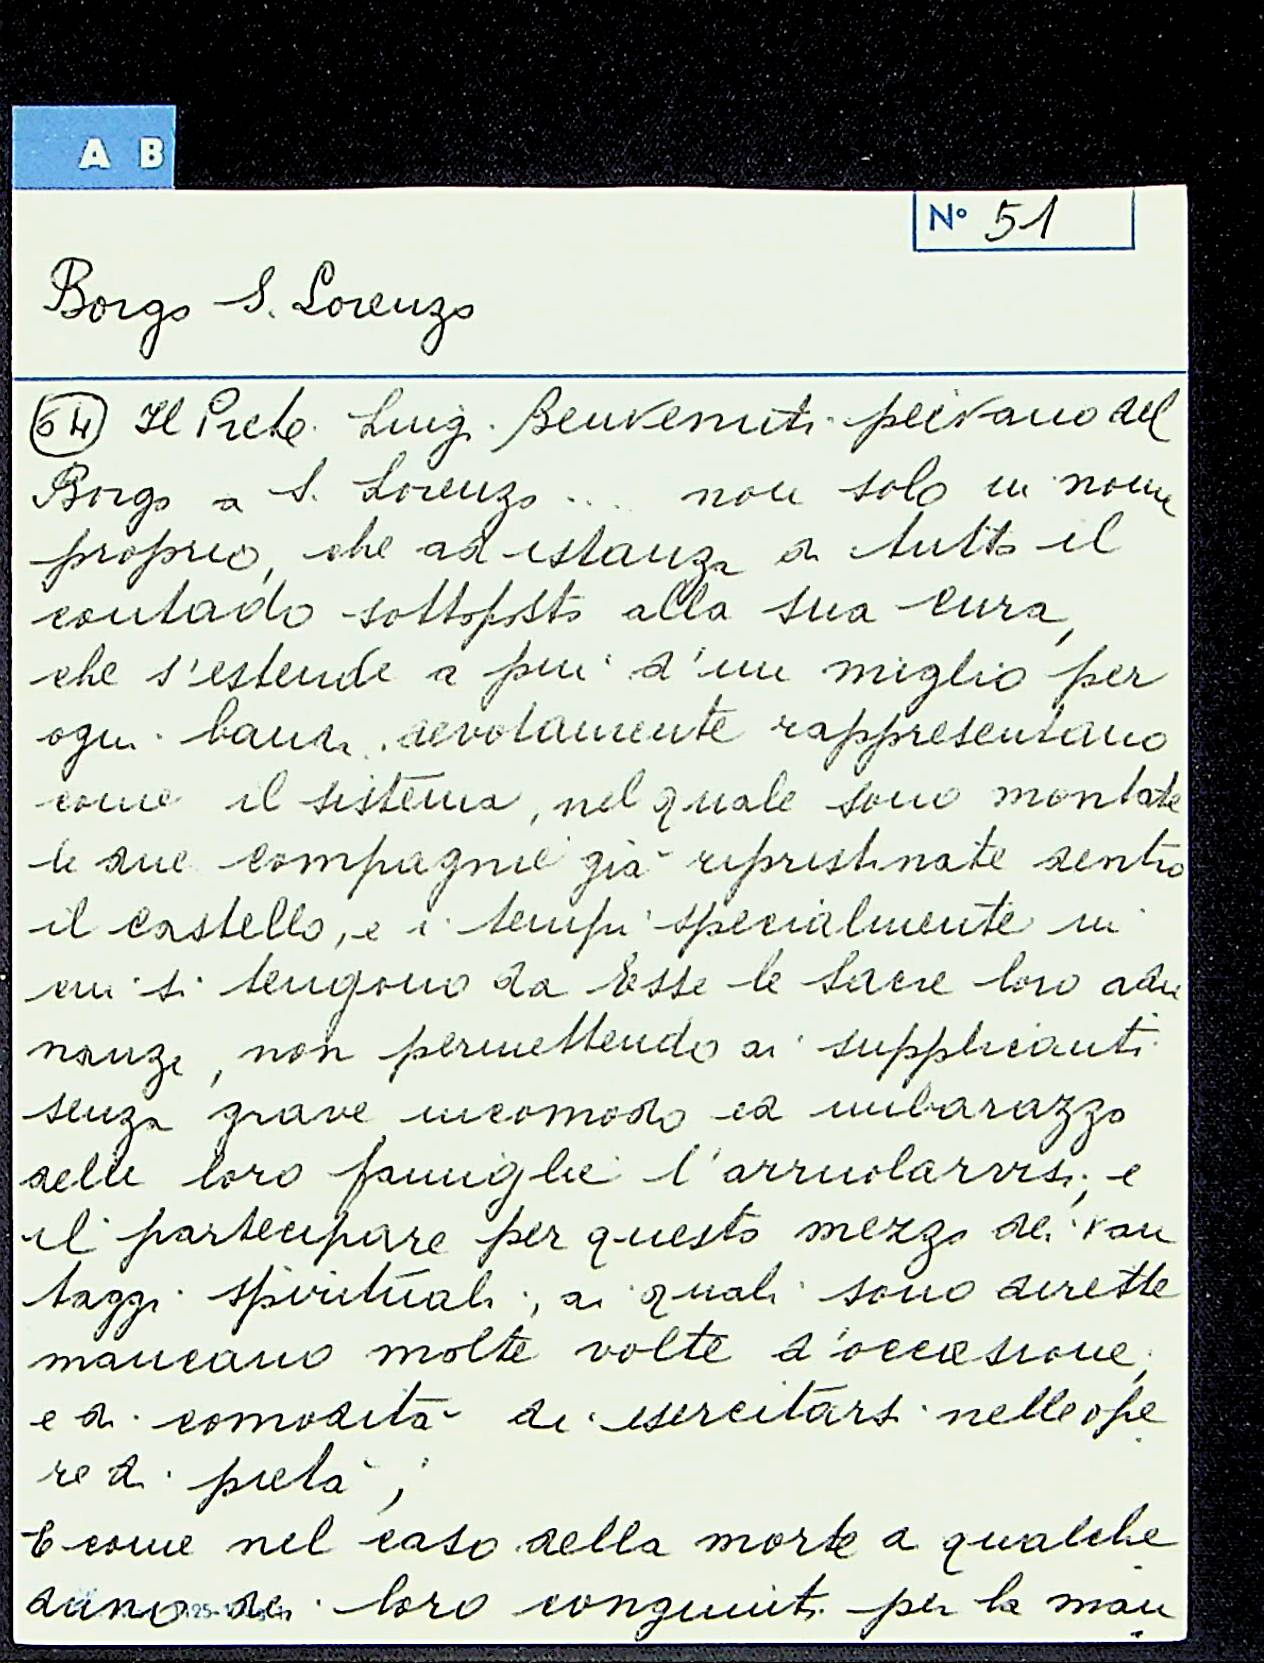 A B
N° 51
Borgo S. Lorenzo
64 Il Prete Luigi Benvenuti pievano del
Borgo a S. Lorenzo ... non solo in nome
proprio, che ad istanza di tutto il
contado sottoposto alla sua cura,
che s'estende a più d'un miglio per
ogni banda devotamente rappresentano
come il sistema, nel quale sono montate
le due compagnie già ripristinate dentro
il castello, e i tempi specialmente in
cui si tengono da Esse le sacre loro adu
nanze, non permettendo ai supplicanti
senza grave incomodo ed imbarazzo
delle loro famiglie l'arruolarvisi, e
il partecipare per questo mezzo dei van
taggi spirituali, ai quali sono dirette
mancano molte volte d'occasione,
e di comodità di esercitarsi nelle ope
re di pietà;
E come nel caso della morte a qualche
duno dei loro congiunti per la man